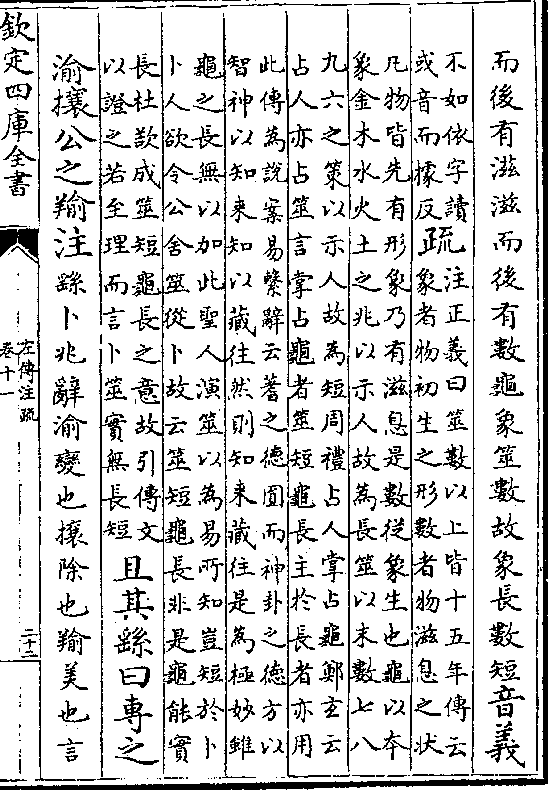 而後有滋滋而後有數龜象筮數故象長數短音義
不如依字讀
或音而據反
疏
注正義曰筮數以上皆十五年傳云
象者物初生之形數者物滋息之狀
凡物皆先有形象乃有滋息是數從象生也龜以本
象金木水火土之兆以示人故為長筮以末數七八
九六之策以示人故為短周禮占人掌占龜鄭玄云
占人亦占筮言掌占龜者筮短龜長主於長者亦用
此傳為說案易繫辭云蓍之德圓而神卦之德方以
智神以知來知以藏往然則知來藏往是為極妙雖
龜之長無以加此聖人演筮以為易所知豈短於卜
卜人欲令公舍筮從卜故云筮短龜長非是龜能實
長杜欲成筮短龜長之意故引傳文
以證之若至理而言卜筮實無長短
且其繇曰專之
渝攘公之羭注繇卜兆辭渝變也攘除也羭美也言
欽定四庫全書
左傳注疏
卷十一
二十二